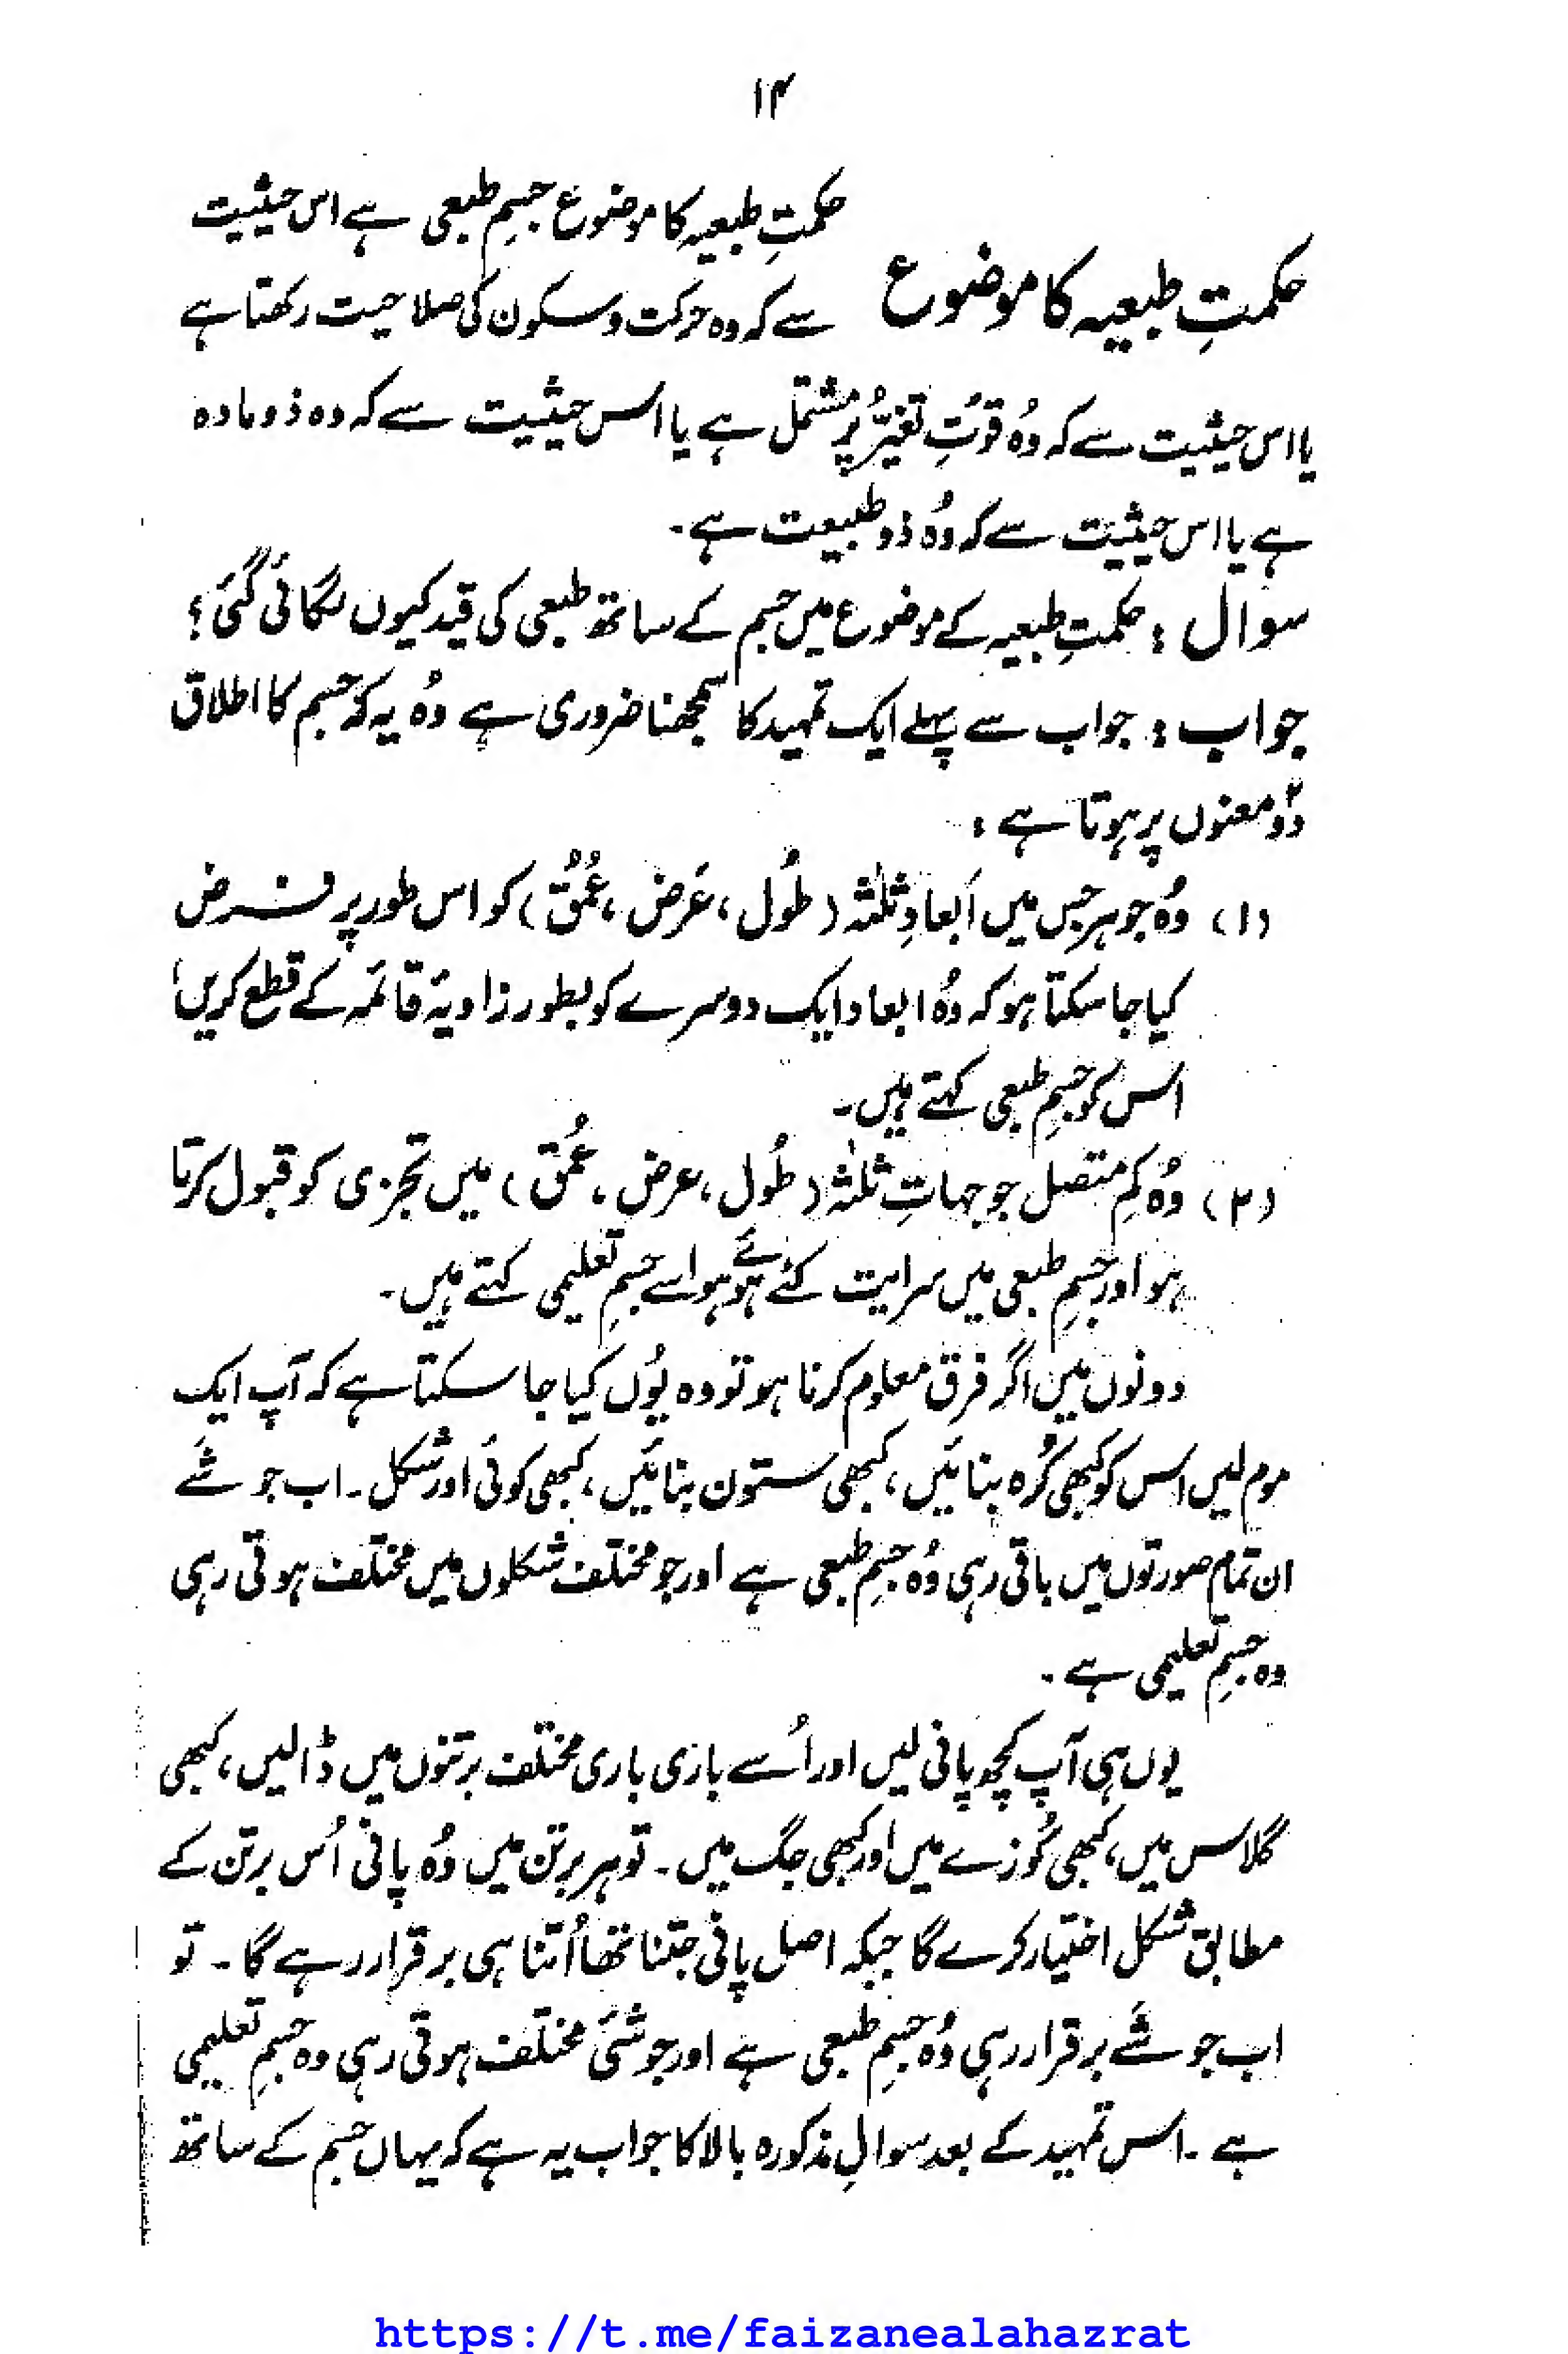 ۱۴
حکمتِ طبعیہ کا موضوع جسمِ طبعی ہے اس حیثیت
حکمتِ طبعیہ کا موضوع
سے کہ وہ حرکت و سکون کی صلاحیت رکھتا ہے
یا اس حیثیت سے کہ وُہ قوتِ تغیّر پر مشتمل ہے یا اس حیثیت سے کہ وہ ذو مادہ
ہے یا اس حیثیت سے کہ وُہ ذو طبیعت ہے۔
سوال : حکمتِ طبعیہ کے موضوع میں جسم کے ساتھ طبعی کی قید کیوں لگائی گئی ؟
جواب : جواب سے پہلے ایک تمہید کا سمجھنا ضروری ہے وُہ یہ کہ جسم کا اطلاق
دو۲ معنوں پر ہوتا ہے :
(۱) وُہ جوہر جس میں اَبعادِ ثلٰثہ (طُول ، عَرض ، عُمُق) کو اس طور پر فرض
کیا جا سکتا ہو کہ وُہ ابعاد ایک دوسرے کو بطور زاویۂ قائمہ کے قطع کریں،
اس کو جسمِ طبعی کہتے ہیں۔
(۲) وُہ کمِ متصل جو جہاتِ ثلٰثہ (طُول ، عرض ، عُمق) میں تجزی کو قبول کرتا
ہو اور جسمِ طبعی میں سرایت کئے ہوئے ہو اسے جسمِ تعلیمی کہتے ہیں۔
دونوں میں اگر فرق معلوم کرنا ہو تو وہ یُوں کیا جا سکتا ہے کہ آپ ایک
موم لیں اس کو کبھی کُرہ بنائیں ، کبھی ستون بنائیں ، کبھی کوئی اور شکل ۔ اب جو شے
ان تمام صورتوں میں باقی رہی وُہ جسمِ طبعی ہے اور جو مختلف شکلوں میں مختلف ہوتی رہی
وہ جسمِ تعلیمی ہے ۔
یوں ہی آپ کچھ پانی لیں اور اُسے باری باری مختلف برتنوں میں ڈالیں ، کبھی
گلاس میں ، کبھی کُوزے میں اور کبھی جگ میں ۔ تو ہر برتن میں وُہ پانی اُس برتن کے
مطابق شکل اختیار کرے گا جبکہ اصل پانی جتنا تھا اُتنا ہی برقرار رہے گا ۔ تو
اب جو شے برقرار رہی وُہ جسمِ طبعی ہے اور جو شئی مختلف ہوتی رہی وہ جسمِ تعلیمی
ہے ۔ اس تمہید کے بعد سوالِ مذکورہ بالا کا جواب یہ ہے کہ یہاں جسم کے ساتھ
https://t.me/faizanealahazrat